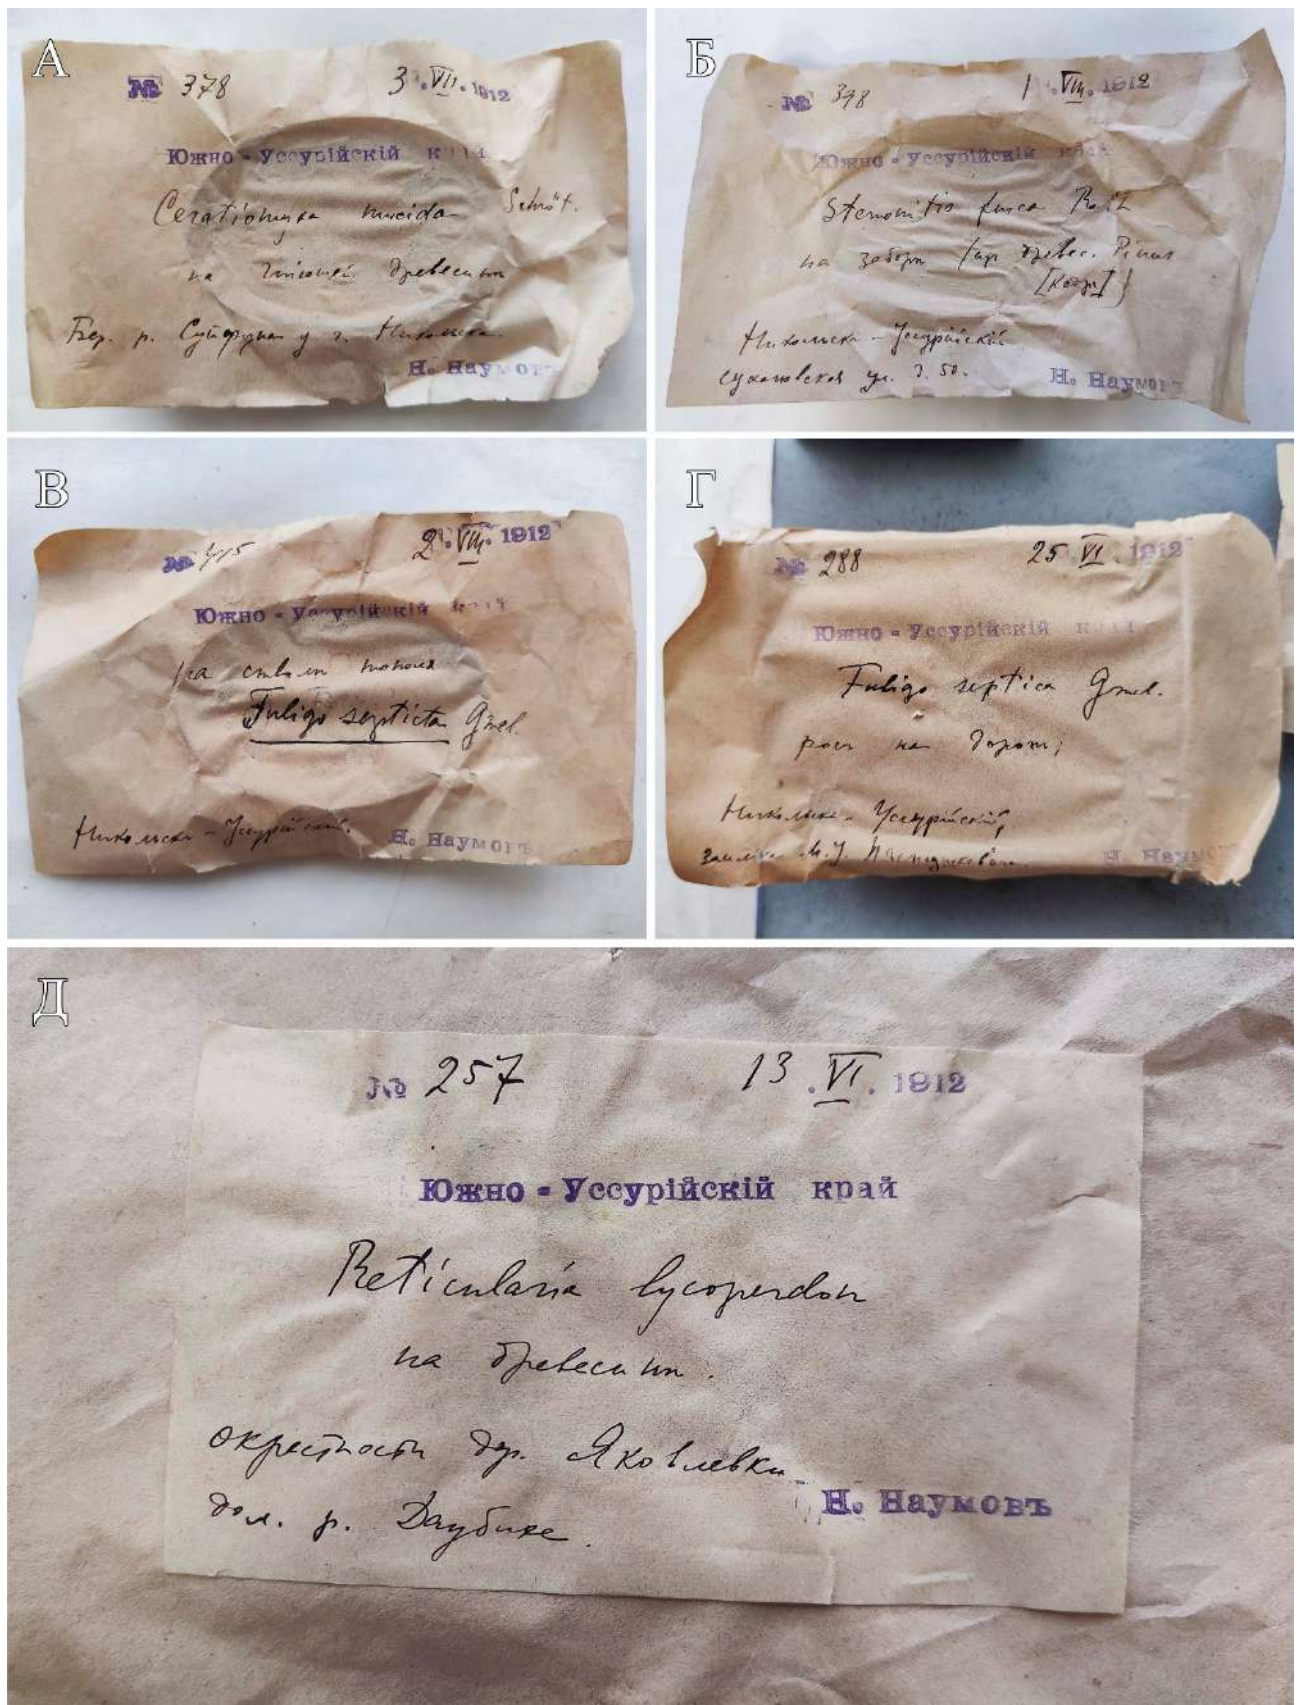 А
№ 378 3.VII.1912
Южно-Уссурійскій край
Ceratiomyxa mucida Schröt.
на гнiющей древесинѣ
Бер. р. Суйфуна у г. Никольска
Н. Наумовъ
Б
№ 398 1.VIII.1912
Южно-Уссурійскій край
Stemonitis fusca Roth
на заборѣ древес. Pinus
Никольскъ-Уссурійскій
ул. д. 50.
Н. Наумовъ
В
№ 415 2.VIII.1912
Южно-Уссурійскій край
на стволѣ тополя
Fuligo septica Gmel.
Никольскъ-Уссурійскій.
Н. Наумовъ
Г
№ 288 25.VI.1912
Южно-Уссурійскій край
Fuligo septica Gmel.
росъ на дорогѣ;
Никольскъ-Уссурійскій,
заимка
Н. Наумовъ
Д
№ 257 13.VI.1912
Южно-Уссурійскій край
Reticularia lycoperdon
на древесинѣ.
окрестности дер. Яковлевки
дол. р. Даубихе.
Н. Наумовъ